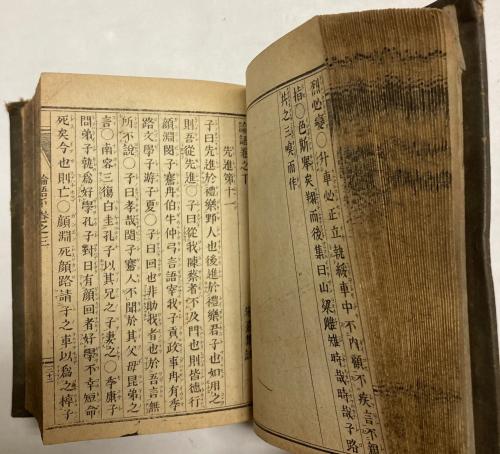 烈必變○升車必正立執綏車中不內顧不疾言不親
指○色斯舉矣翔而後集曰山梁雌雉時哉時哉子路
共之三嗅而作
論語卷之
先進第十一
子曰先進於禮樂野人也後進於禮樂君子也如用之
則吾從先進○子曰從我陳蔡者不及門也則皆德行
顏淵閔子騫冉伯牛仲弓言語宰我子貢政事冉有季
路文學子游子夏○子曰回也非助我者也於吾言無
所不說○子曰孝哉閔子騫人不間於其父母昆弟之
言○南容三復白圭孔子以其兄之子妻之○季康子
問弟子孰爲好學孔子對曰有顏回者好學不幸短命
死矣今也則亡○顏淵死顏路請子之車以爲之椁子